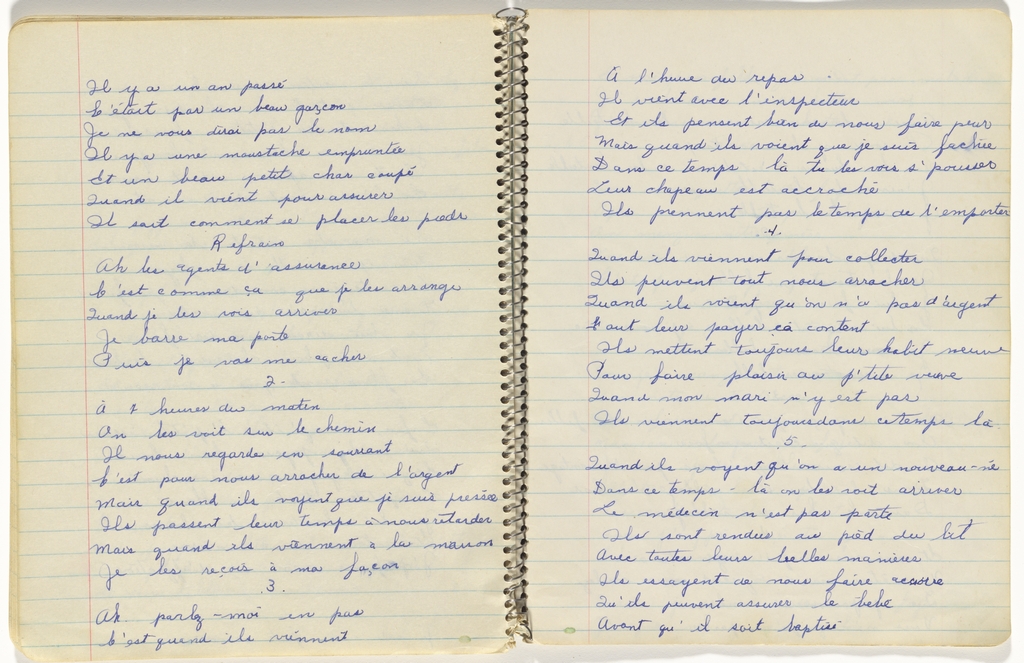 Il y a un an passé
C'était par un beau garçon
Je ne vous dirai pas le nom
Il y a une moustache empruntée
Et un beau petit char coupé
Quand il vient pour assurer
Il sait comment se placer les pieds
Refrain
Ah les agents d'assurance
C'est comme ça que je les arrange
Quand je les vois arriver
Je barre ma porte
Puis je vas me cacher
2-
À 7 heures du matin
On les voit sur le chemin
Il nous regarde en souriant
C'est pour nous arracher de l'argent
Mais quand ils voyent que je suis pressée
Ils passent leur temps à nous retarder
Mais quand ils viennent à la maison
Je les reçois à ma façon
.3.
Ah parlez-moi en pas
C'est quand ils viennent
À l'heure du repas
Il vient avec l'inspecteur
Et ils pensent bien de nous faire peur
Mais quand ils voient que je suis fachée
Dans ce temps là tu les vois s'pousser
Leur chapeau est accroché
Ils prennent pas le temps de l'emporter
.4.
Quand ils viennent pour collecter
Ils peuvent tout nous arracher
Quand ils voient qu'on n'a pas d'argent
Faut leur payer ça content
Ils mettent toujours leur habit neuve
Pour faire plaisir au p'tite veuve
Quand mon mari n'y est pas
Ils viennent toujours dans ce temps là
.5.
Quand ils voyent qu'on a un nouveau-né
Dans ce temps-là on les voit arriver
Le médecin n'est pas parti
Ils sont rendus au pied du lit
Avec toutes leurs belles manières
Ils essayent de nous faire accroire
Qu'ils peuvent assurer le bébé
Avant qu'il soit baptisé